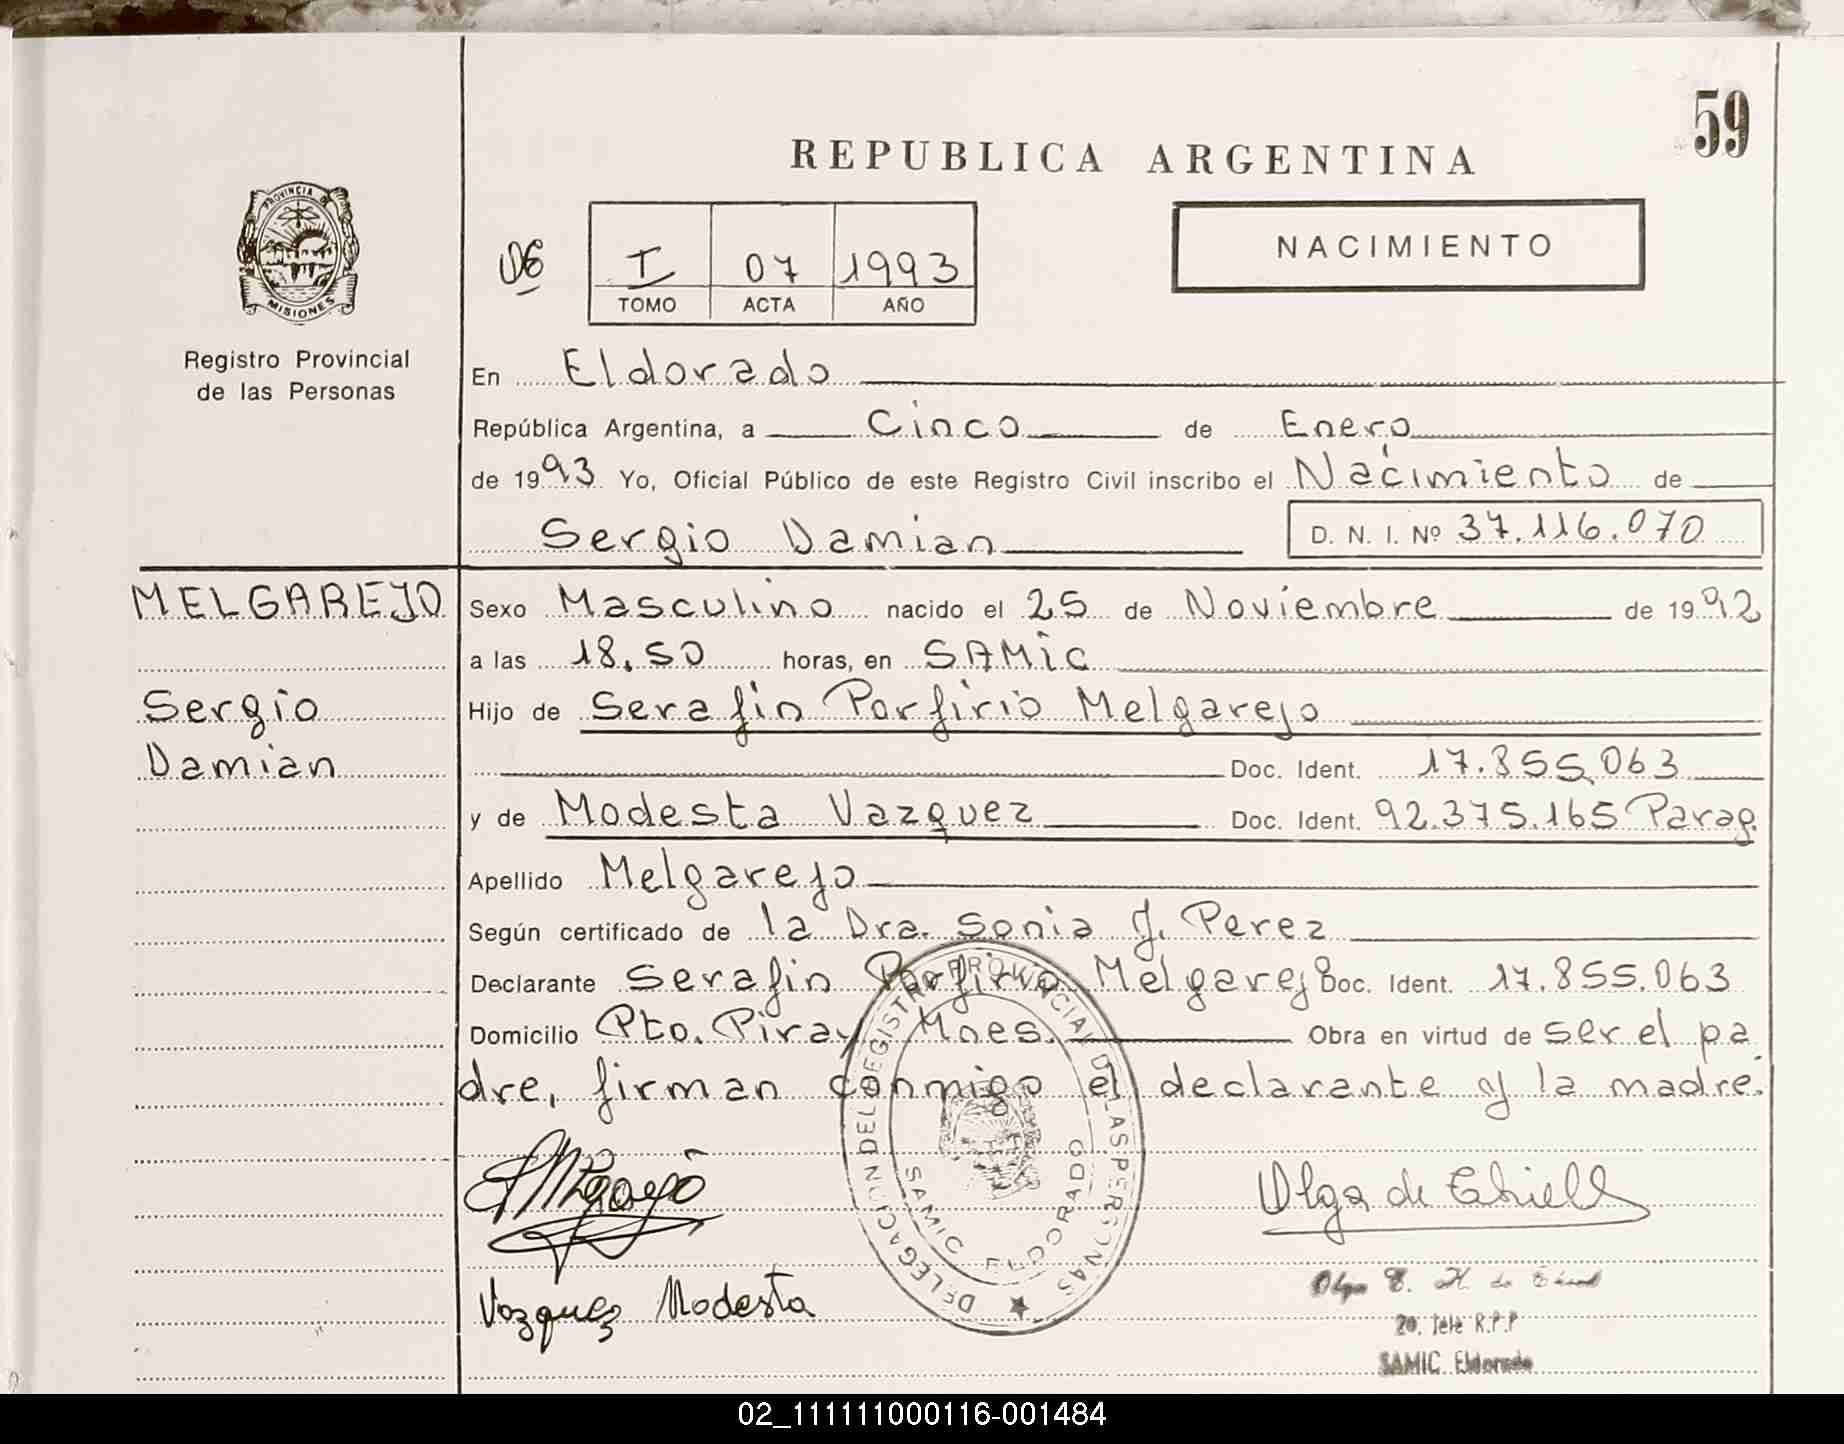 59
REPUBLICA ARGENTINA
PROVINCIA DE
MISIONES
Registro Provincial
de las Personas
06
I 07 1993
TOMO ACTA AÑO
NACIMIENTO
En Eldorado
República Argentina, a Cinco de Enero
de 1993 Yo, Oficial Público de este Registro Civil inscribo el Nacimiento de
Sergio Damian D. N. I. Nº 37.116.070
MELGAREJO
Sergio
Damian
Sexo Masculino nacido el 25 de Noviembre de 1992
a las 18,50 horas, en SAMic
Hijo de Serafin Porfirio Melgarejo
Doc. Ident. 17.855.063
y de Modesta Vazquez Doc. Ident. 92.375.165 Parag.
Apellido Melgarejo
Según certificado de la Dra. Sonia J. Perez
Declarante Serafin Porfirio Melgarejo Doc. Ident. 17.855.063
Domicilio Pto. Piray Mnes. Obra en virtud de ser el pa
dre, firman conmigo el declarante y la madre.
DELEGACION DEL REGISTRO PROVINCIAL DE LAS PERSONAS
SAMIC ELDORADO
Vazquez Modesta
Olga de
Olga E. H. de
R.P.P
SAMIC Eldorado
02_111111000116-001484